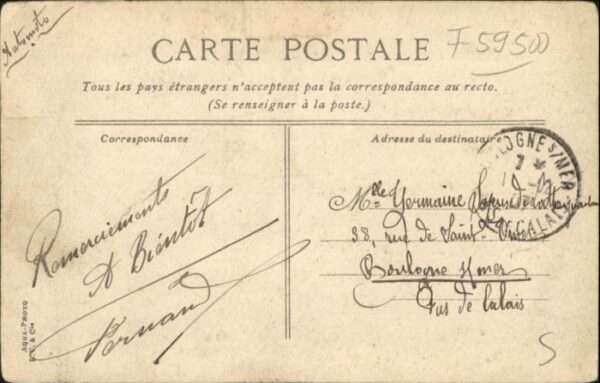 Automoto
F 59500
CARTE POSTALE
Tous les pays étrangers n'acceptent pas la correspondance au recto.
(Se renseigner à la poste.)
Correspondance
Adresse du destinataire
BOULOGNE S/MER
7
PAS DE CALAIS
Remerciements
A Bientôt
Fernand
Mlle Germaine
38, rue de Saint-
Boulogne s/mer
Pas de Calais
AQUA-PHOTO
& Cie
S